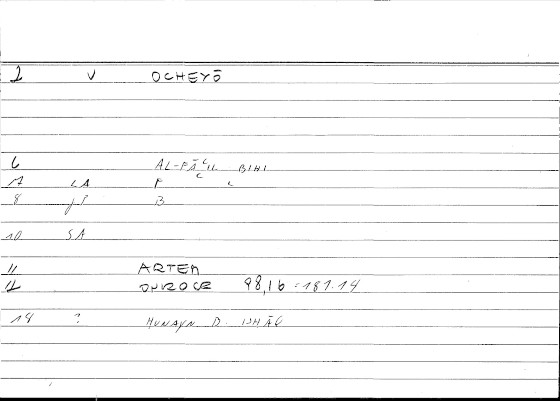 2 V OCHEYŌ
6 AL-FĀʿIL BIHI
7 LA F ʿ
8 B
10 SA
11 ARTEM
12 98,16 = 187.14
14 ? HUNAYN B. ISHĀQ